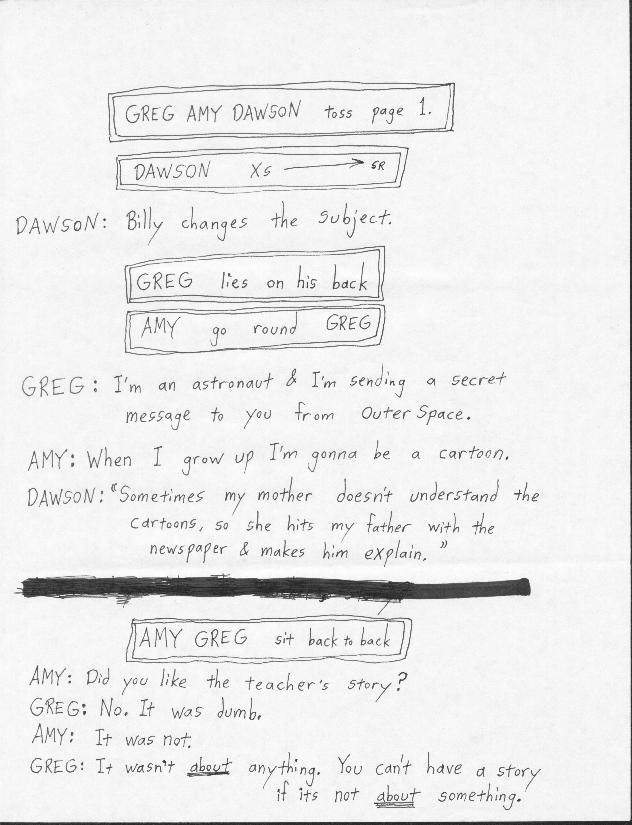 GREG AMY DAWSON toss page 1.
DAWSON Xs → SR
DAWSON: Billy changes the subject.
GREG lies on his back
AMY go round GREG
GREG: I'm an astronaut & I'm sending a secret
message to you from Outer Space.
AMY: When I grow up I'm gonna be a cartoon.
DAWSON: "Sometimes my mother doesn't understand the
cartoons, so she hits my father with the
newspaper & makes him explain."
AMY GREG sit back to back
AMY: Did you like the teacher's story?
GREG: No. It was dumb.
AMY: It was not.
GREG: It wasn't about anything. You can't have a story
if its not about something.